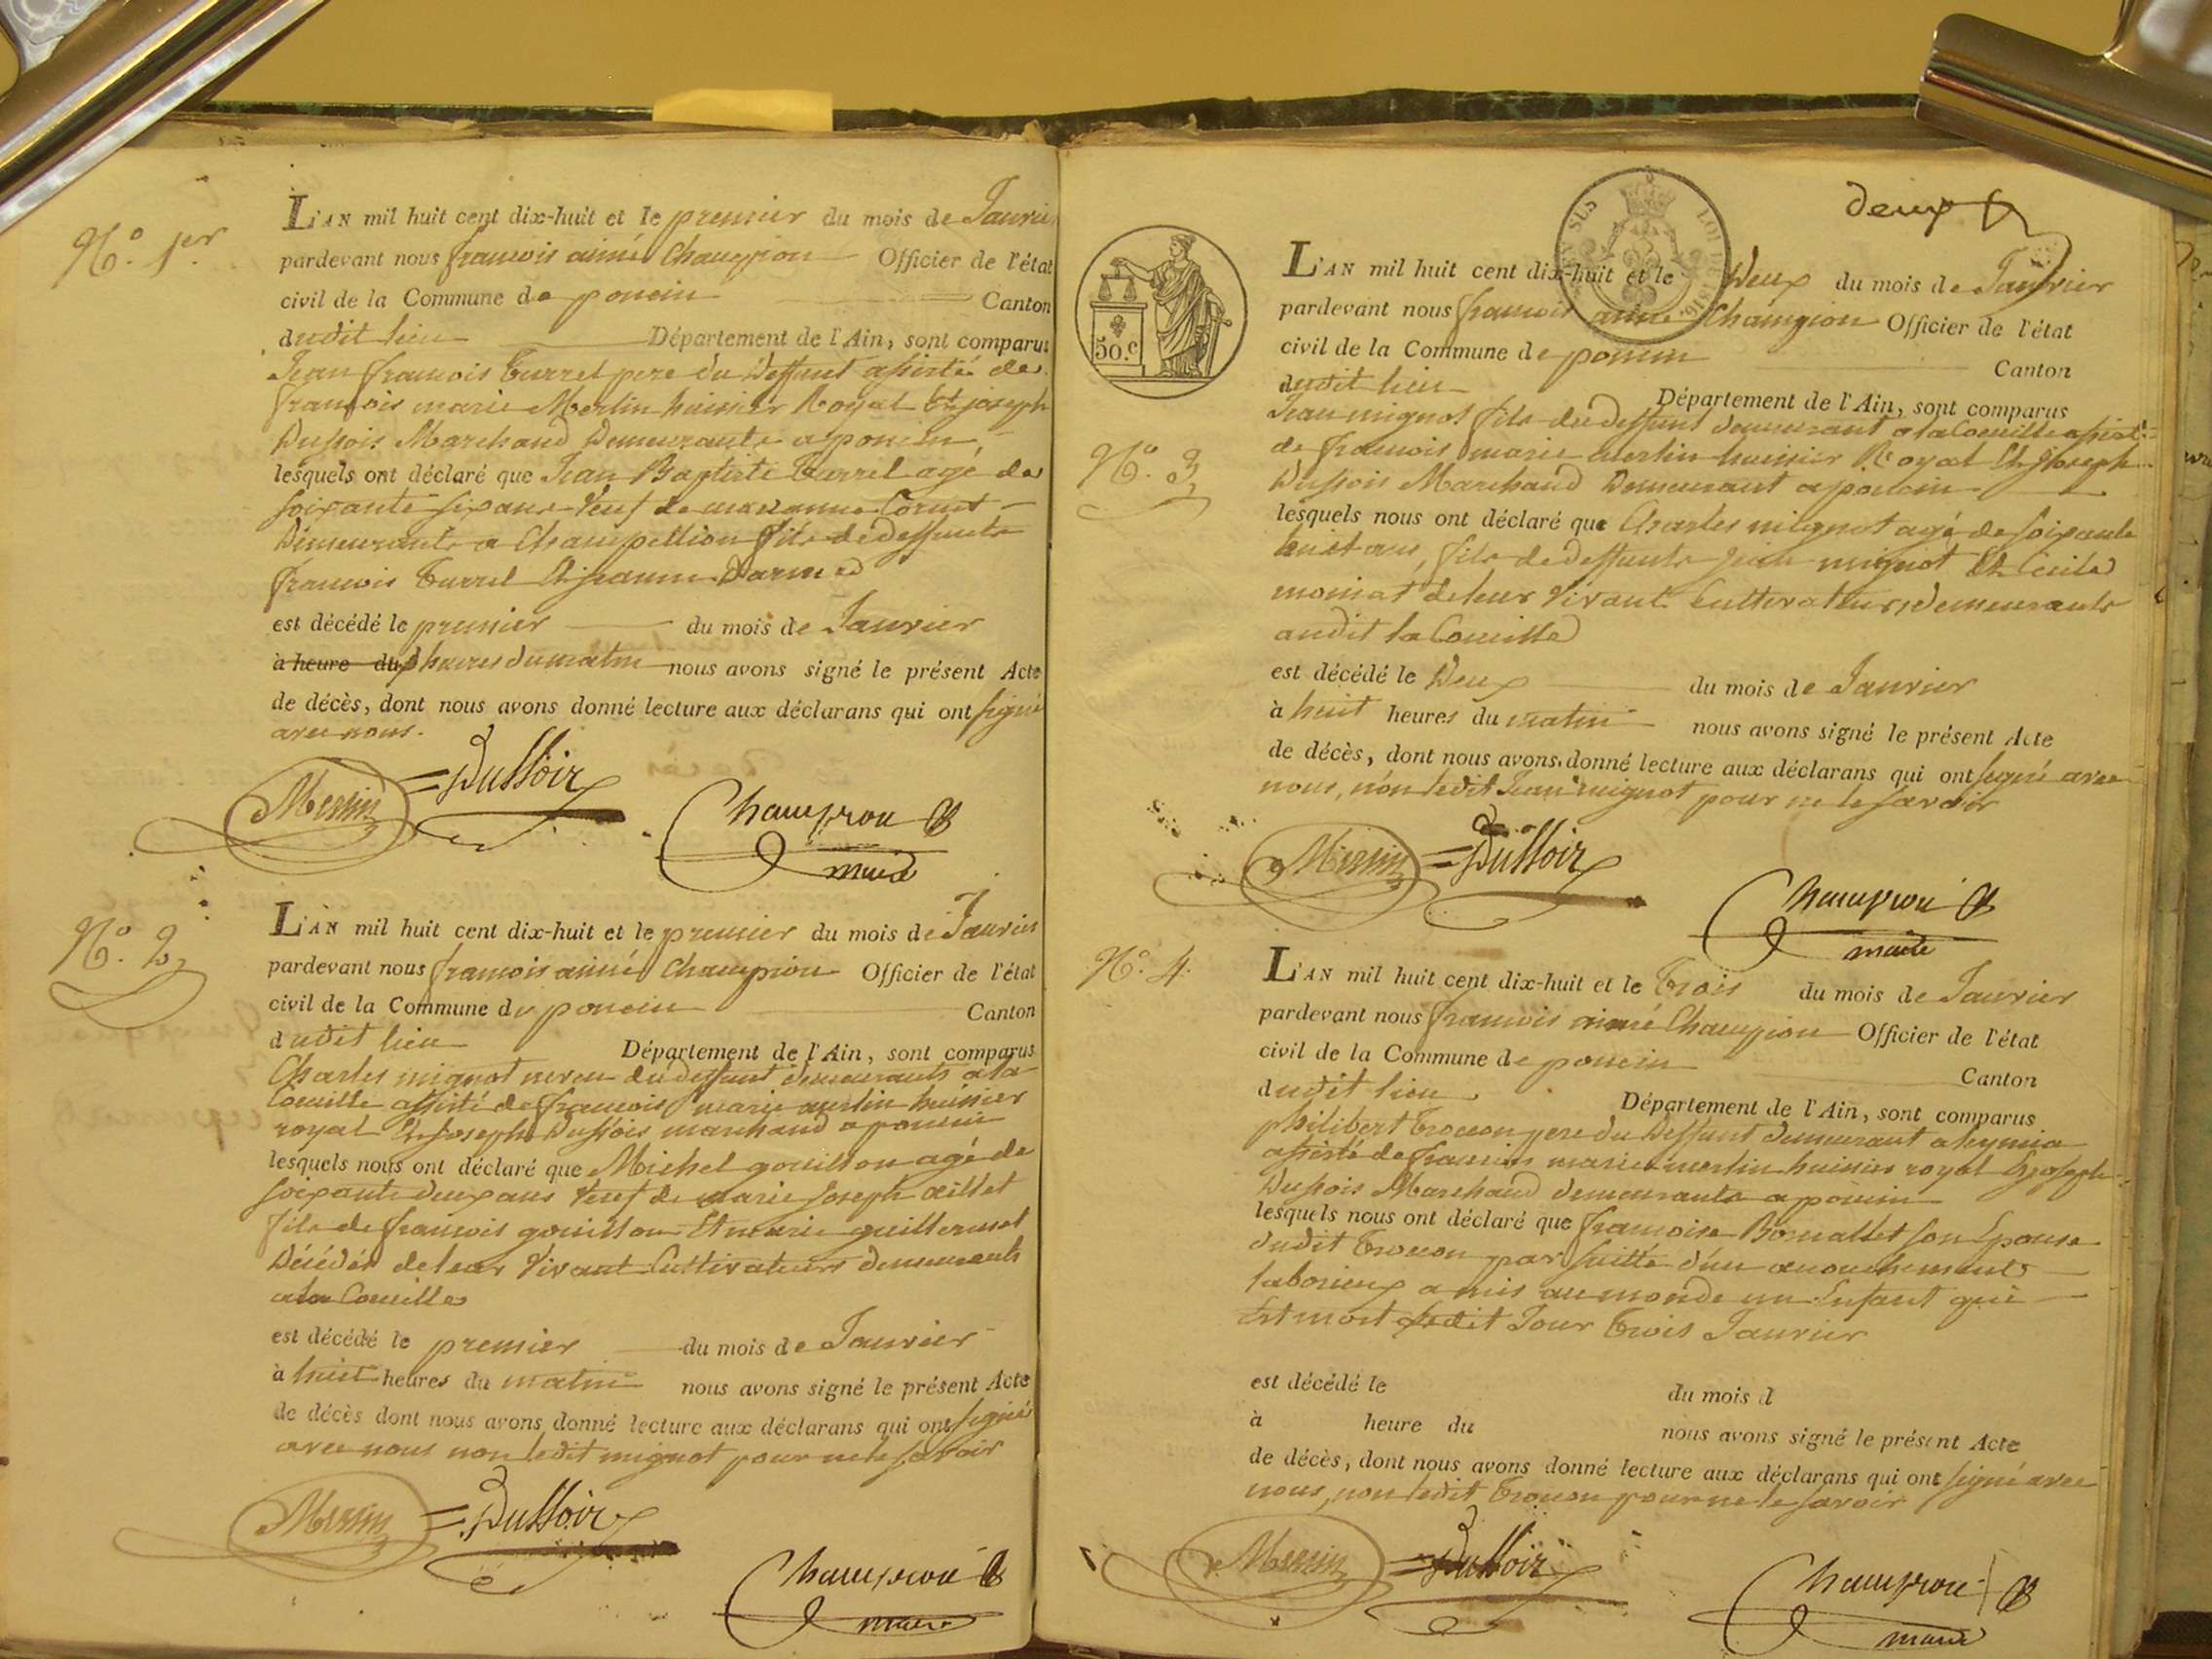 N.o 1er
L'AN mil huit cent dix-huit et le premier du mois de Janvier
pardevant nous françois aimé Champion Officier de l'état
civil de la Commune de poncin Canton
dudit lieu Département de l'Ain, sont comparus
Jean françois Turrel pere du deffunt assisté de
françois marie Merlin huissier Royal Et joseph
Dussoir Marchand Demeurants a poncin,
lesquels ont déclaré que Jean Baptiste Turrel agé de
soixante six ans Veuf de marianne Cornet
Demeurants a Champeillion fils de deffunts
francois Turrel Et jeanne
est décédé le premier du mois de Janvier
à heure du heures du matin nous avons signé le présent Acte
de décès, dont nous avons donné lecture aux déclarans qui ont signé
avec nous.
Merlin = Dussoir
Champion
maire
N.o 2
L'AN mil huit cent dix-huit et le premier du mois de Janvier
pardevant nous francois aimé Champion Officier de l'état
civil de la Commune de poncin Canton
dudit lieu Département de l'Ain, sont comparus
Charles mignot neveu du deffunt demeurants a la
Coueille assisté de francois marie merlin huissier
royal Et Joseph Dussoir marchand a poncin
lesquels nous ont déclaré que Michel gouillon agé de
soixante deux ans Veuf de marie Joseph aillet
fils de francois gouillon Et marie guillermet
Décédés de leur Vivant Cultivateurs demeurants
a la Coueille
est décédé le premier du mois de Janvier
à huit heures du matin nous avons signé le présent Acte
de décès dont nous avons donné lecture aux déclarans qui ont signé
avec nous non ledit mignot pour ne le savoir
Merlin = Dussoir
Champion
maire
deux
LOI DE 1816
50.c
N.o 3
L'AN mil huit cent dix-huit et le Deux du mois de Janvier
pardevant nous francois aimé Champion Officier de l'état
civil de la Commune de poncin Canton
dudit lieu Département de l'Ain, sont comparus
Jean mignot fils du deffunt demeurant a la Coueille assisté
de francois marie merlin huissier Royal Et Joseph
Dussoir Marchand Demeurant a poncin
lesquels nous ont déclaré que Charles mignot agé de soixante
huit ans, fils de deffunts Jean mignot Et Cecile
moniat de leur Vivant Cultivateurs, demeurants
audit la Coueille
est décédé le Deux du mois de Janvier
à huit heures du matin nous avons signé le présent Acte
de décès, dont nous avons donné lecture aux déclarans qui ont signé avec
nous, non ledit Jean mignot pour ne le savoir
Merlin = Dussoir
Champion
maire
N.o 4.
L'AN mil huit cent dix-huit et le Trois du mois de Janvier
pardevant nous francois aimé Champion Officier de l'état
civil de la Commune de poncin Canton
dudit lieu Département de l'Ain, sont comparus
philibert Trocon pere du Deffunt demeurant a leymia
assisté de francois marie merlin huissier royal Et joseph
Dussoir Marchand demeurants a poncin
lesquels nous ont déclaré que francoise son Epouse
dudit Trocon par suitte d'un acouchement
laborieux a mis au monde un Enfant qui
Est mort ledit Jour Trois Janvier
est décédé le du mois d
à heure du nous avons signé le présent Acte
de décès, dont nous avons donné lecture aux déclarans qui ont signé avec
nous, non ledit Trocon pour ne le savoir
Merlin = Dussoir
Champion
maire